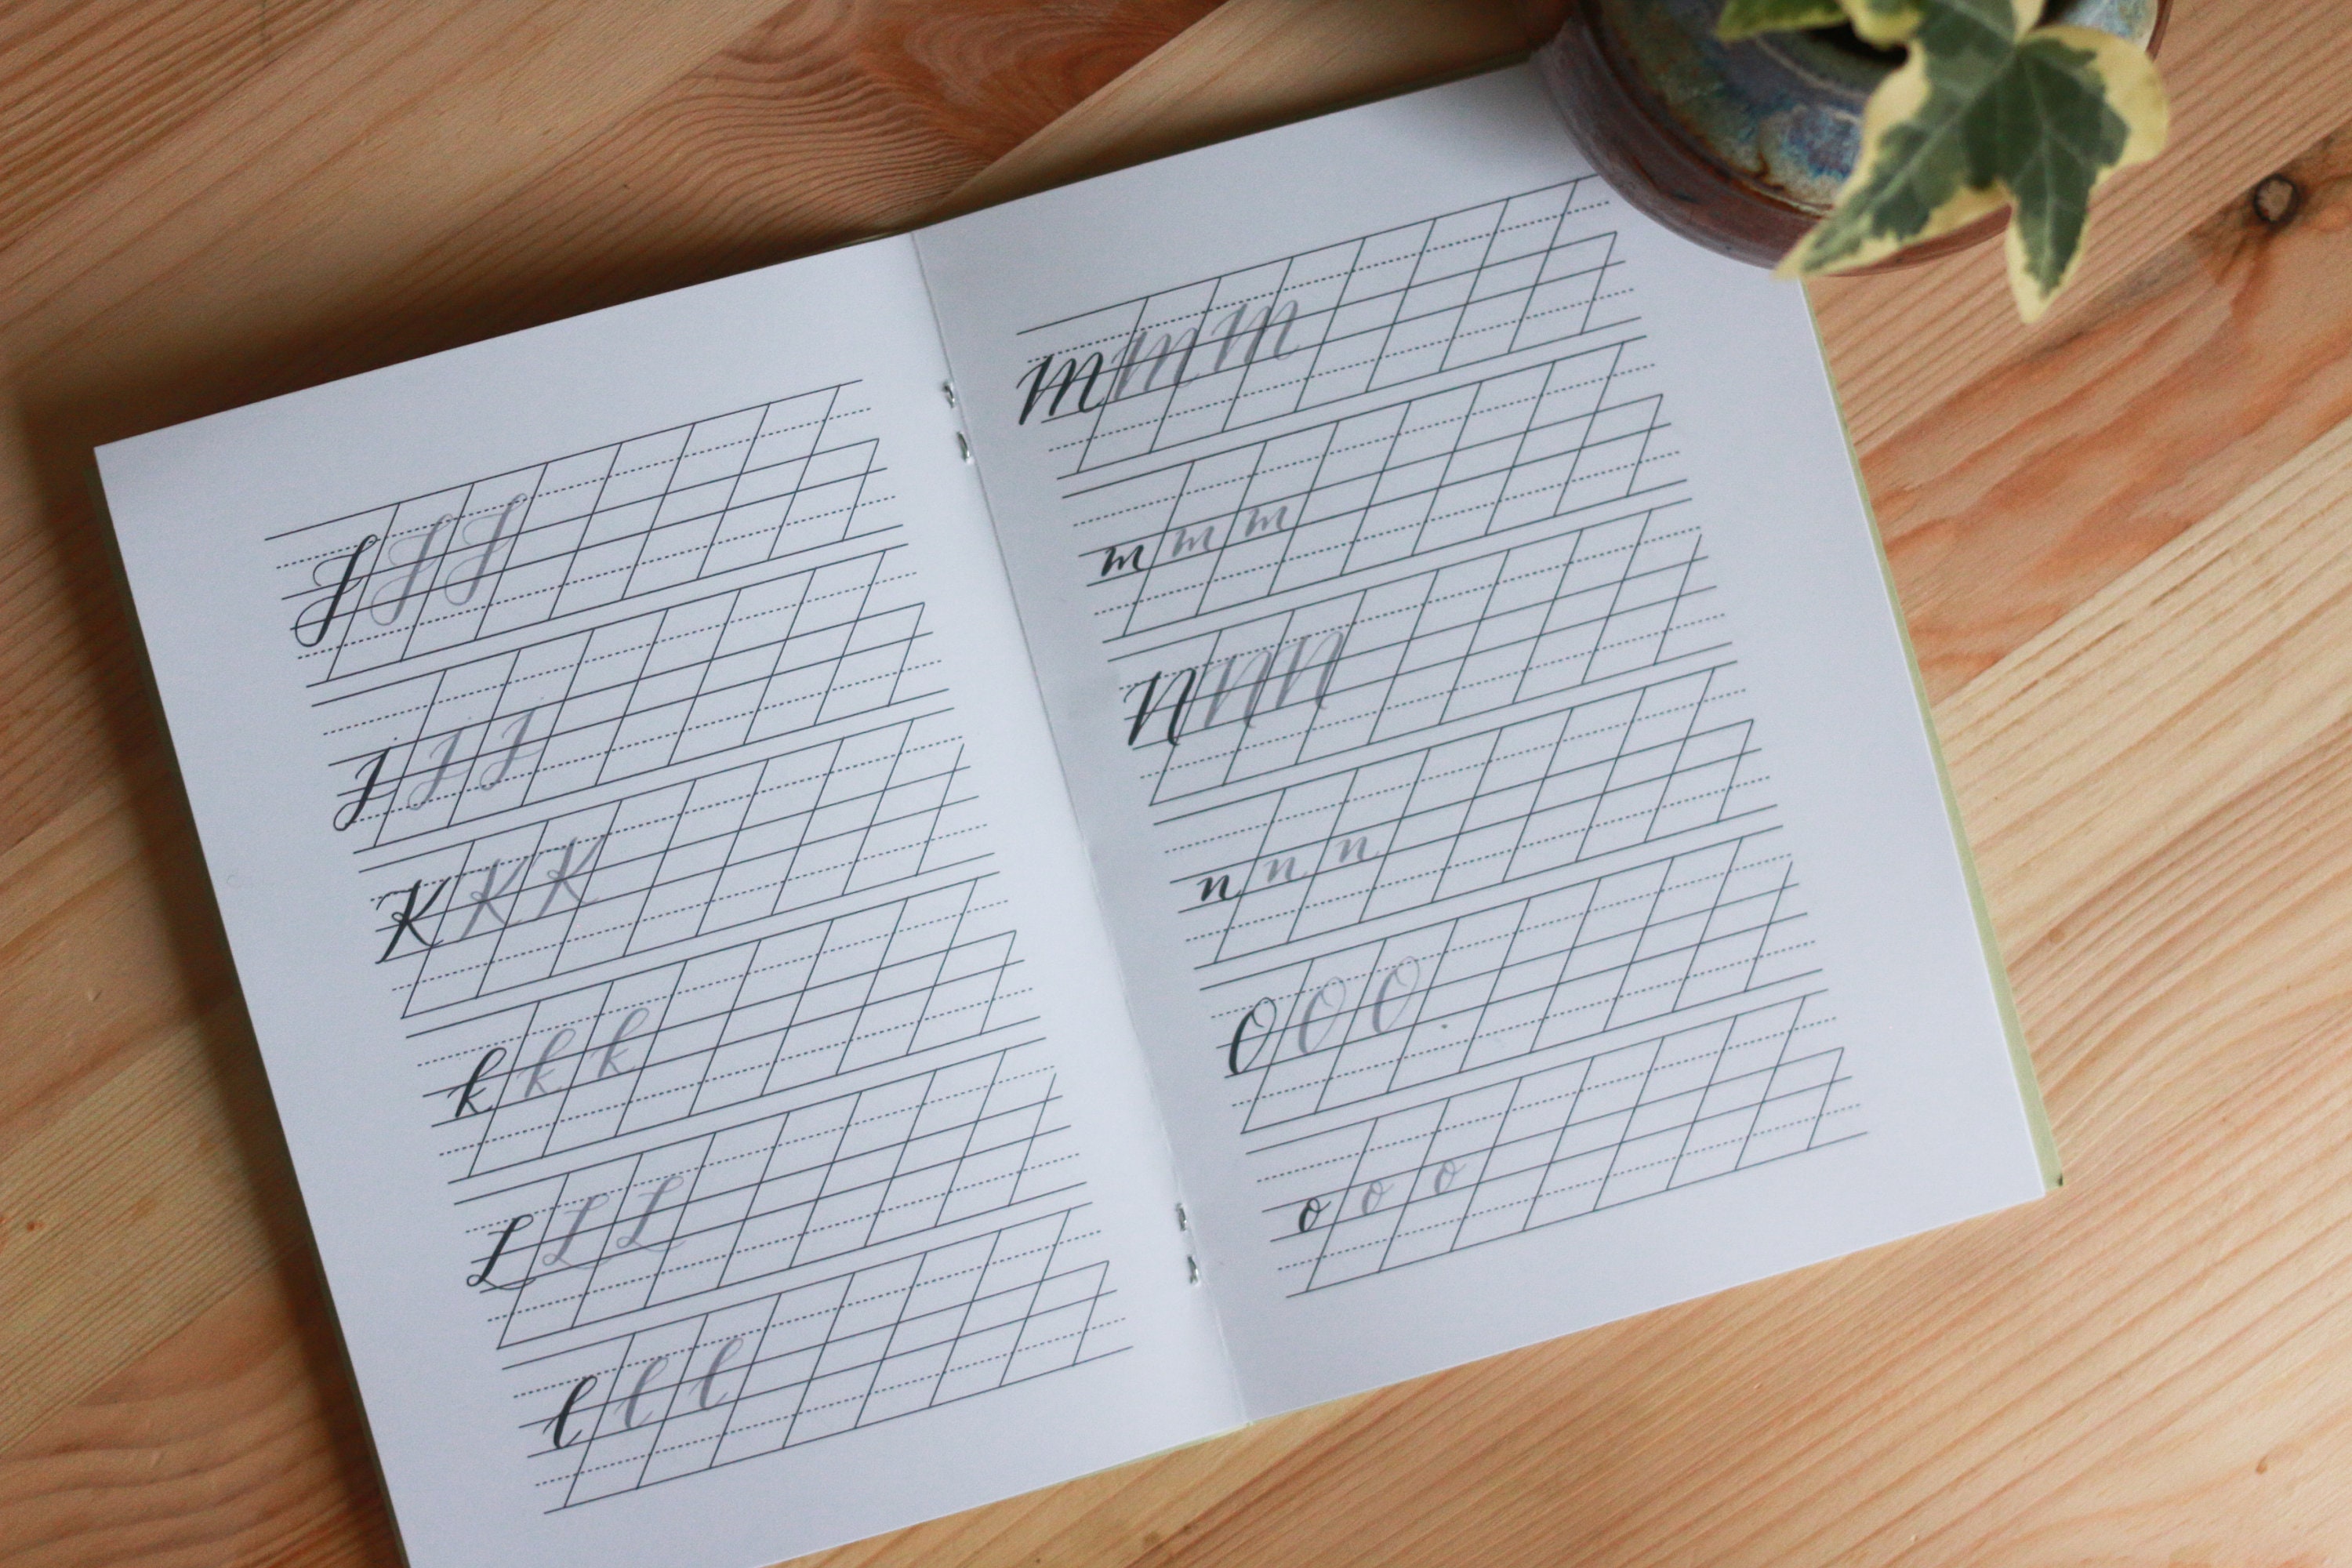 J J J
j j j
K K K
k k k
L L L
l l l
M M M
m m m
N N N
n n n
O O O
o o o